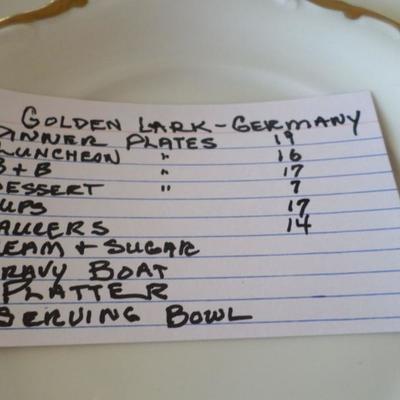 GOLDEN LARK - GERMANY
DINNER PLATES 19
LUNCHEON " 16
B + B " 17
DESSERT " 7
CUPS 17
SAUCERS 14
CREAM + SUGAR
GRAVY BOAT
PLATTER
SERVING BOWL